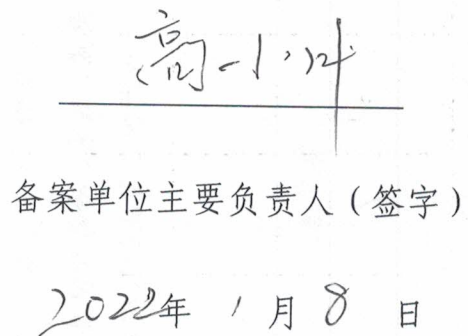 高
备案单位主要负责人（签字）
2022年1月8日